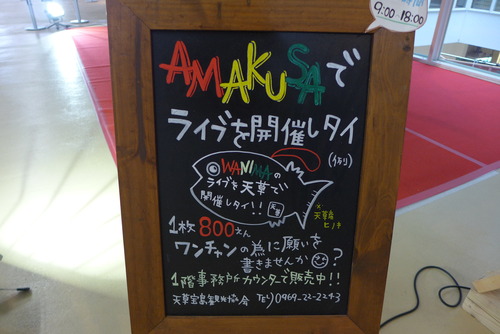 9:00~18:00
AMAKUSAで
ライブを開催しタイ
(例)
WANIMAの
ライブを天草で
開催しタイ!!
天草
※天草産
ヒノキ
1枚800えん
ワンチャンの為に願いを
書きませんか?
1階事務所カウンターで販売中!!
天草宝島観光協会 TEL) 0969-22-2243